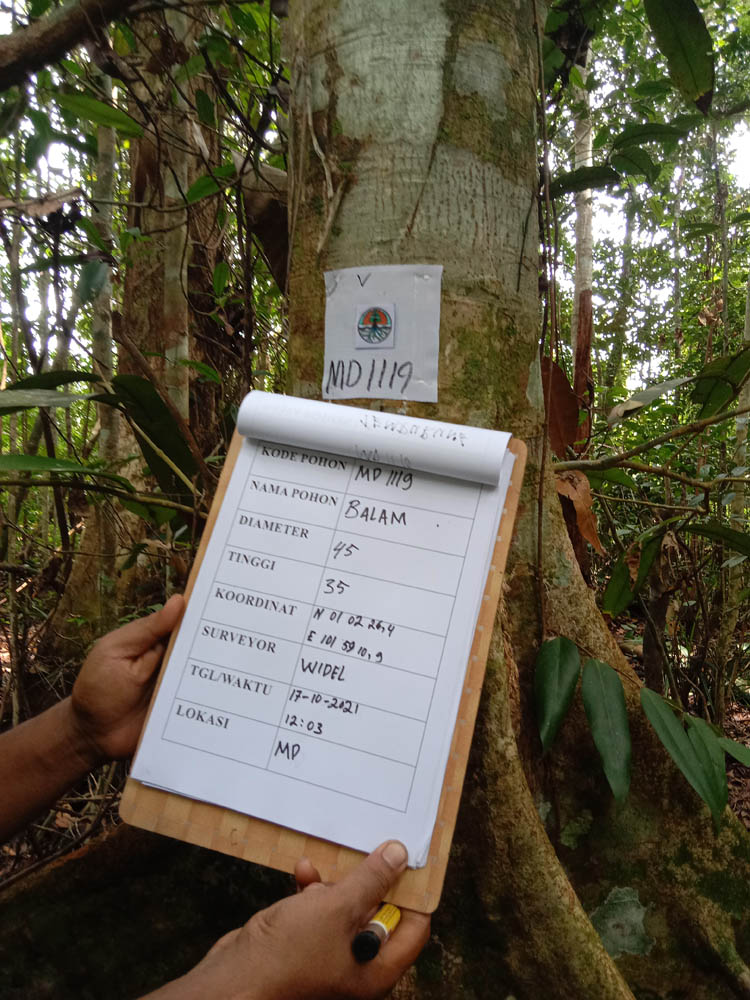 V
MD1119
KODE POHON MD 1119
NAMA POHON BALAM
DIAMETER 45
TINGGI 35
KOORDINAT N 01 02 26,4
E 101 59 10,9
SURVEYOR WIDEL
TGL/WAKTU 17-10-2021
12:03
LOKASI MP